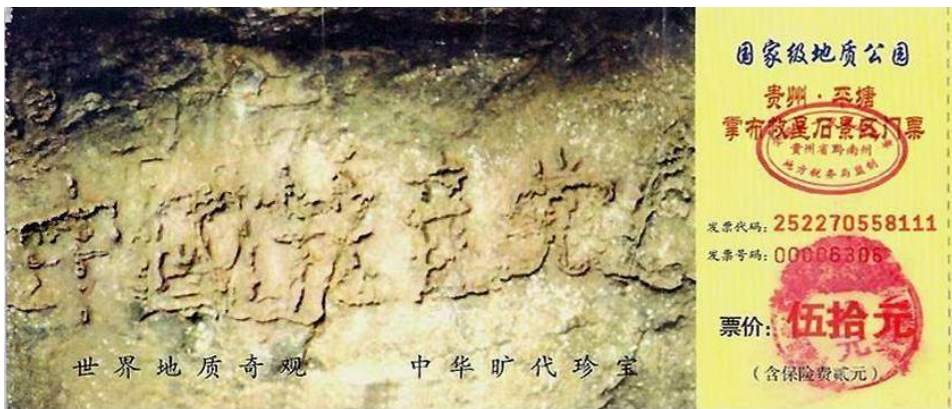 中國共産党
世界地质奇观 中华旷代珍宝
国家级地质公园
贵州·平塘
掌布救星石景区门票
贵州省黔南州
地方税务局监制
发票代码: 252270558111
发票号码: 00006306
票价: 伍拾元
(含保险费贰元)